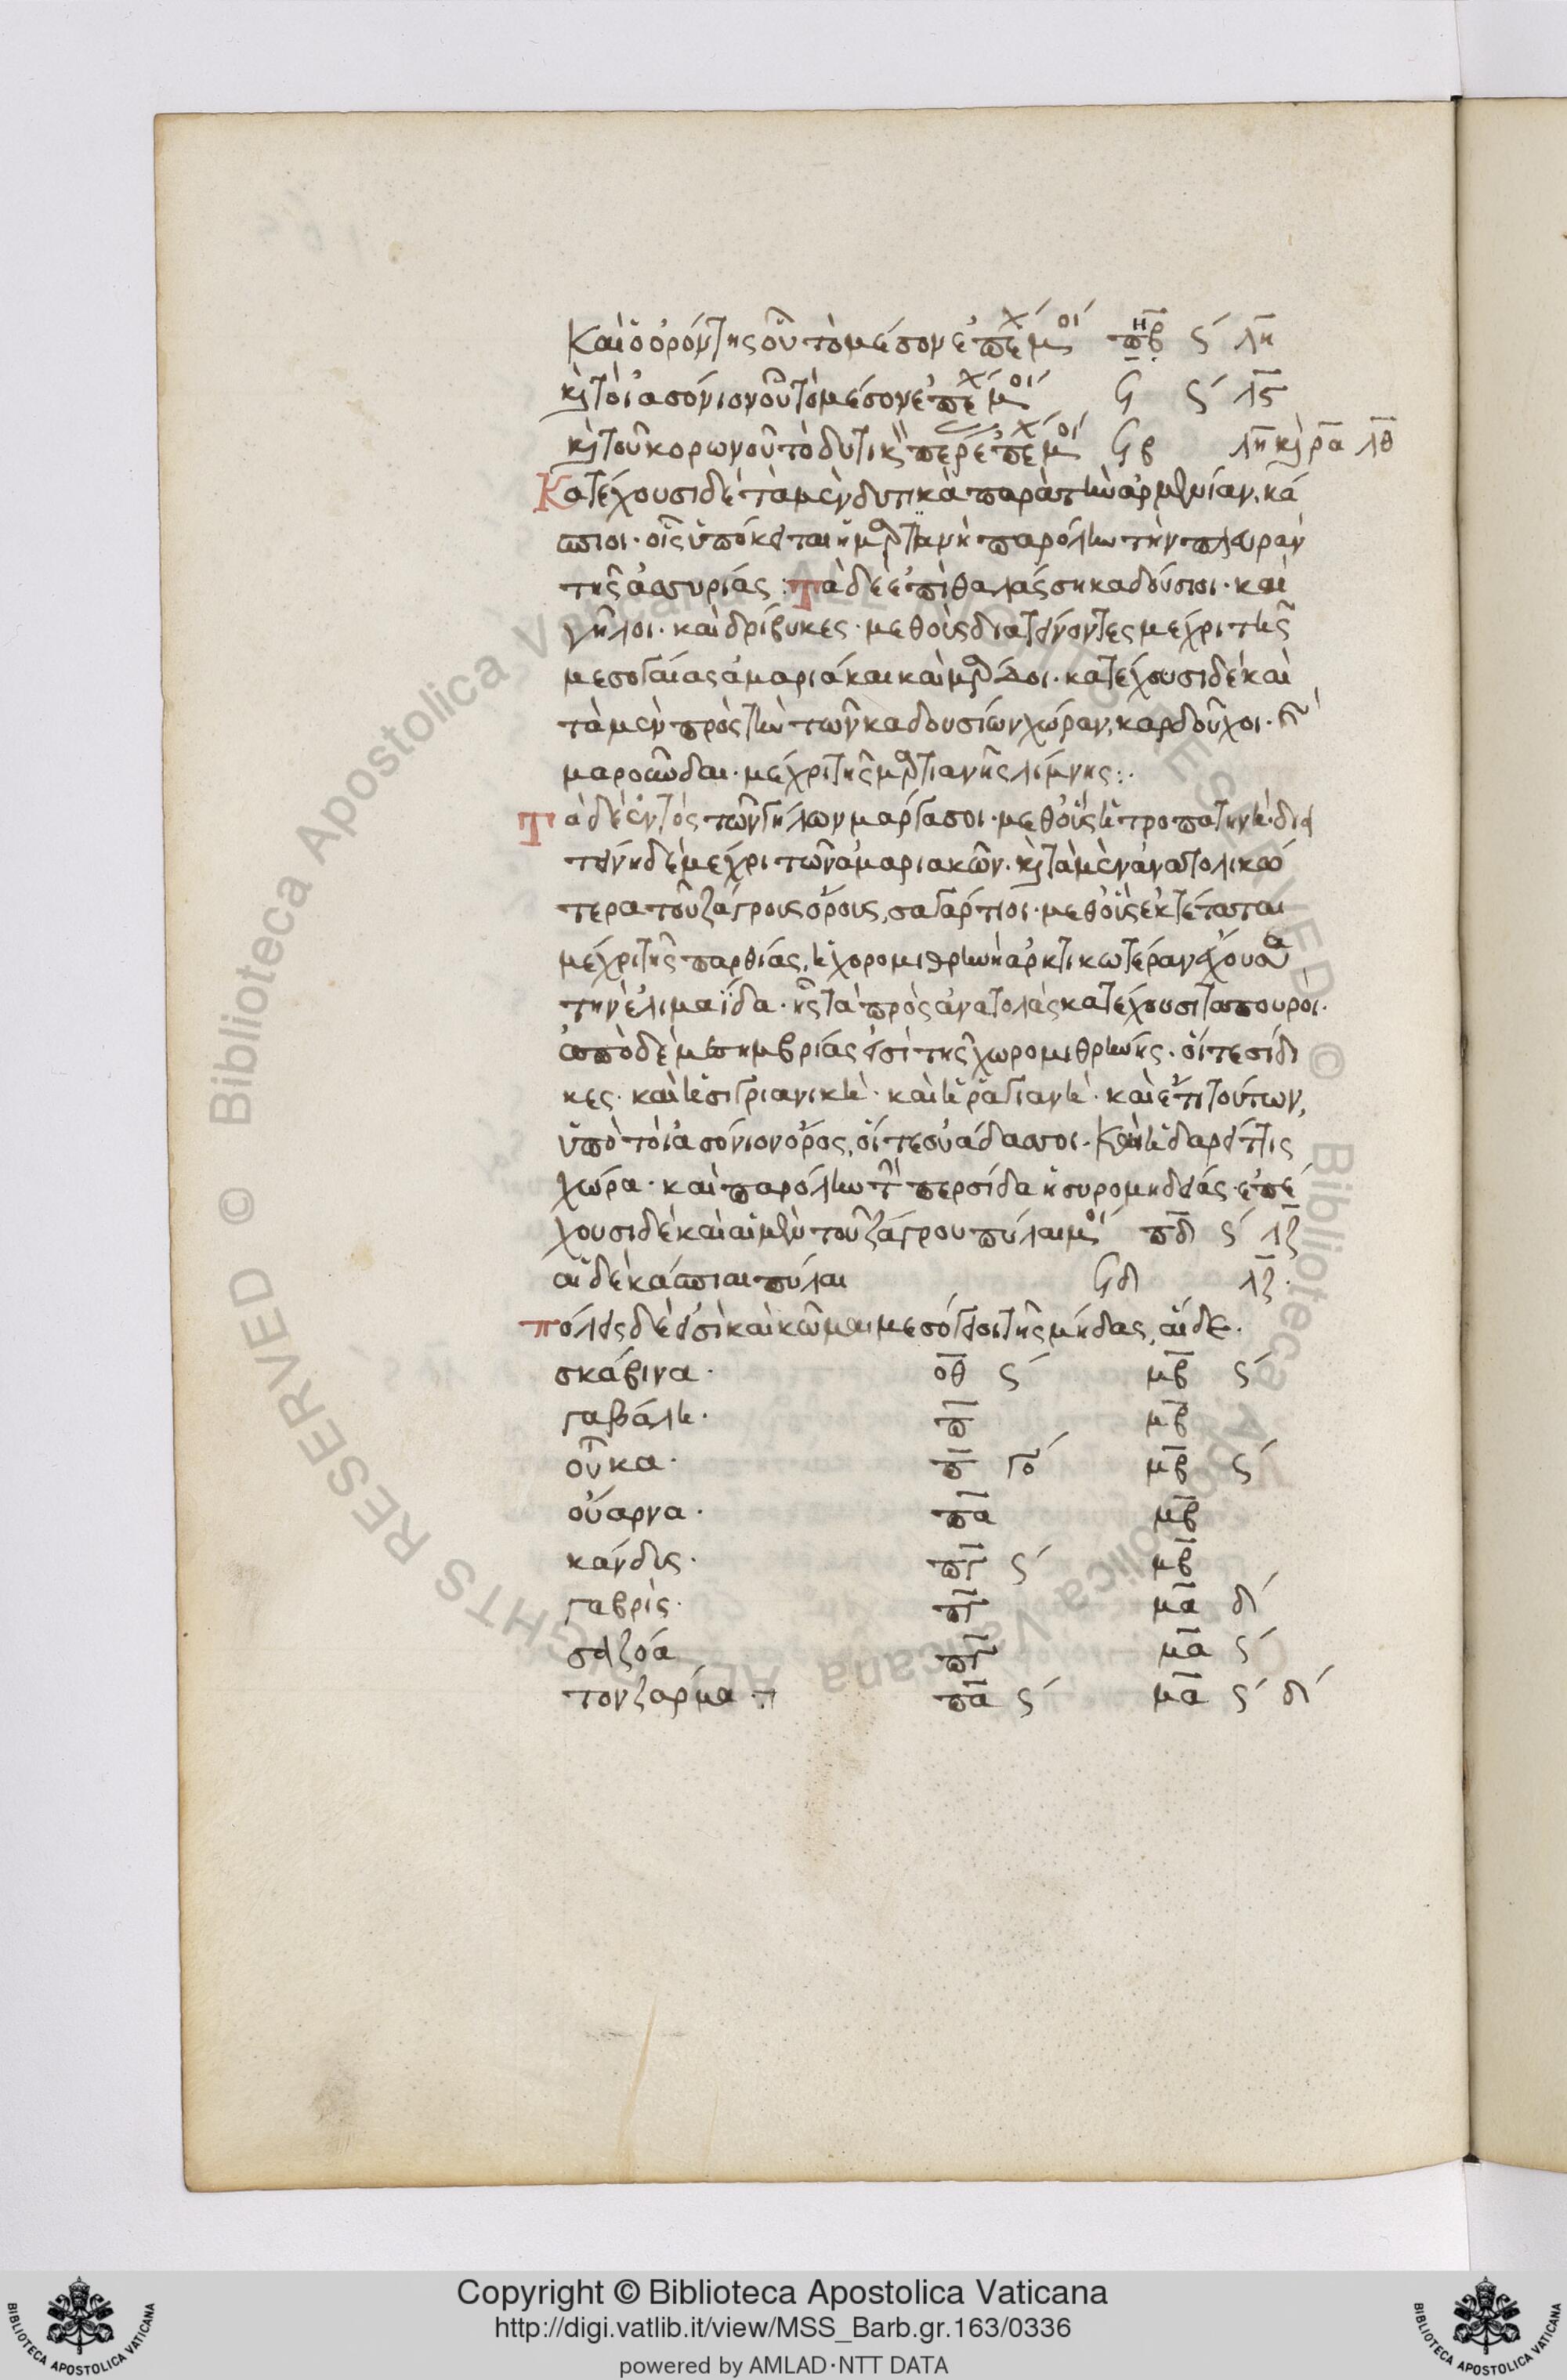 Καὶ ὁ ὀρόντης οὗ τὸ μέσον ἐπέχ μοί πηβ ς´ λη
κ τὸ ἰασόνιον οὗ τὸ μέσον ἐπέχ μοί ϟ ς´ λς
κ τοῦ κορωνοῦ τὸ δυτικ πέρ ἐπέχ μοί ϟβ λη κ ρα λθ
Κατέχουσι δὲ τὰ μὲν δυτικὰ παρὰ τὴν ἀρμενίαν, κά
σπιοι· οἷς ὑπόκειται ἡ μαρτιανὴ παρόλην τὴν πλευρὰν
τῆς ἀσσυρίας : τὰ δὲ ἐπὶ θαλάσσῃ καδούσιοι· καὶ
γῆλοι· καὶ δρίβυκες· μεθ οὓς διατείνοντες μέχρι τῆς
μεσογαίας ἀμαριάκαι καὶ μάρδοι· κατέχουσι δὲ καὶ
τὰ μὲν πρὸς τὴν τῶν καδουσίων χώραν, καρδοῦχοι· κ
μαροῦνδαι· μέχρι τῆς μαρτιανῆς λίμνης :.
Τὰ δὲ ἐντὸς τῶν γήλων μαργασοι· μεθ οὓς ἡ τροπατηνή· δια
τείνει δὲ μέχρι τῶν ἀμαριακῶν· κ τὰ μὲν ἀνατολικώ
τερα τοῦ ζάγρους ὄρους, σαγάρτιοι· μεθ οὓς ἐκτέταται
μέχρι τῆς παρθίας, ἡ χορομιθρηνὴ ἀρκτικωτέραν ἔχουσα
τὴν ἐλιμαΐδα· ἧς τὰ πρὸς ἀνατολὰς κατέχουσι ταπουροί·
ἀπὸ δὲ μεσημβρίας εἰσὶ τῆς χωρομιθρηνῆς· οἵ τε σίδι
κες· καὶ ἡ σιγριανική· καὶ ἡ ῥαγιανή· καὶ ἔτι τούτων,
ὑπὸ τὸ ἰασόνιον ὄρος, οἵ τε οὐάδασσοι· Καὶ ἡ δαρεῖτις
χώρα· καὶ παρόλην τ περσίδα ἡ συρομηδείας· ἐπέ
χουσι δὲ καὶ αἱ μὲν τοῦ ζάγρου πύλαι μοί πδ ς´ λζ
αἱ δὲ κάσπιαι πύλαι ϟδ λζ·
πόλεις δέ εἰσὶ καὶ κῶμαι μεσόγειοι τῆς μηδίας, αἵδε·
σκάβινα· οθ ς´ μβ ς´
γαβάλη· π μβ
οὖκα· π γο´ μβ ς´
οὐάρνα· πα μβ
κάνδις· πγ ς´ μβ
γαβρίς· πγ μα δ´
σαζόα πγ μα ς´
τονζάρμα· πα ς´ μα ς´ δ´
Copyright © Biblioteca Apostolica Vaticana
http://digi.vatlib.it/view/MSS_Barb.gr.163/0336
powered by AMLAD·NTT DATA